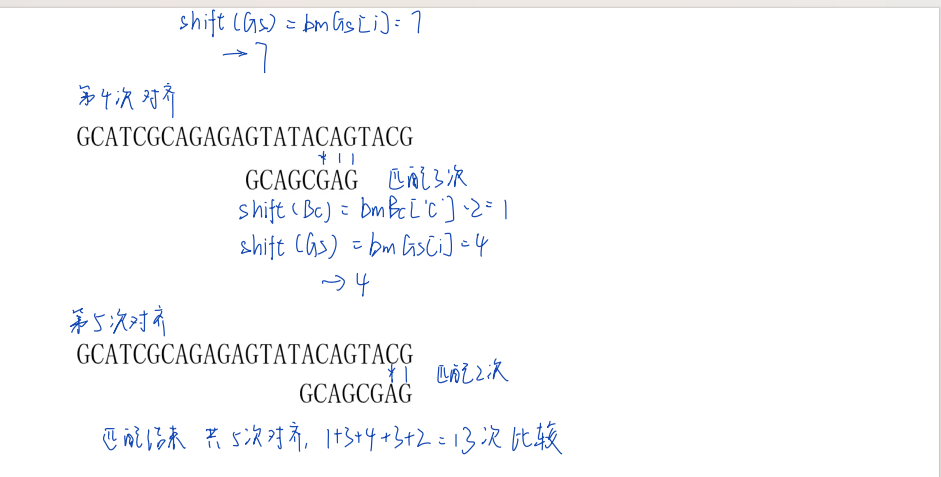 shift(Gs) = bmGs[i] = 7
→ 7
第4次对齐
GCATCGCAGAGAGTATACAGTACG
* 1 1
GCAGCGAG 匹配3次
shift(Bc) = bmBc['C']-2=1
shift(Gs) = bmGs[i]=4
→ 4
第5次对齐
GCATCGCAGAGAGTATACAGTACG
* 1 匹配2次
GCAGCGAG
匹配结束 共5次对齐, 1+3+4+3+2=13次比较